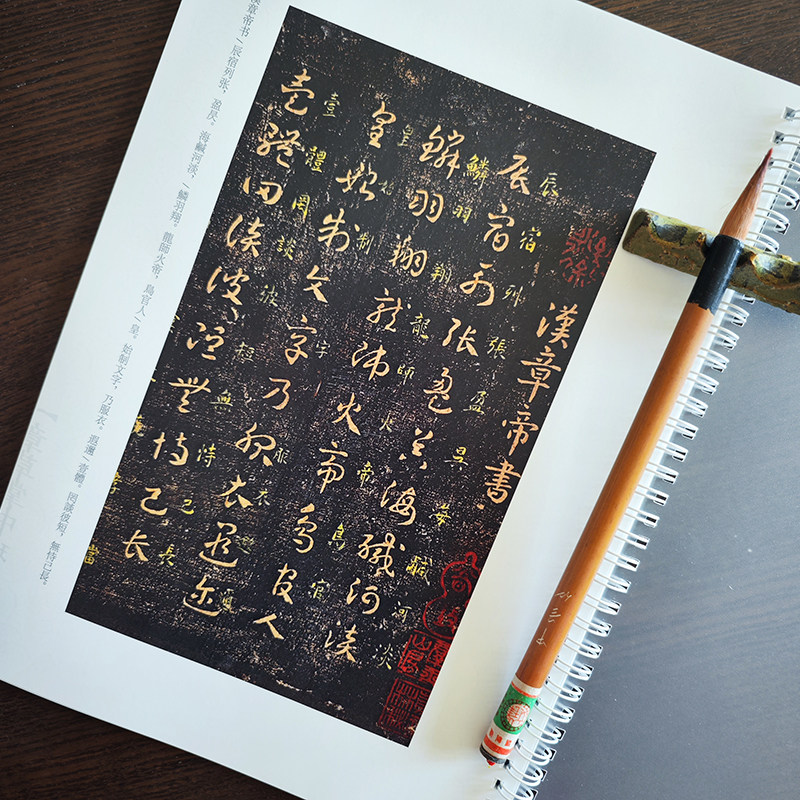 漢章帝書
辰宿列張盈昃海鹹河淡
辰宿列張盈昃海鹹河淡
鱗羽翔龍師火帝鳥官人
鱗羽翔龍師火帝鳥官
皇始制文字乃服衣遐迩
皇始制字服衣邇
壹體罔談彼短無恃己長
壹體罔談彼短無恃己長
漢章帝书｜辰宿列张，盈昃。海鹹河淡，｜鱗羽翔。龍師火帝，鳥官人｜皇。始制文字，乃服衣。遐邇｜壹體。罔談彼短，無恃己長。